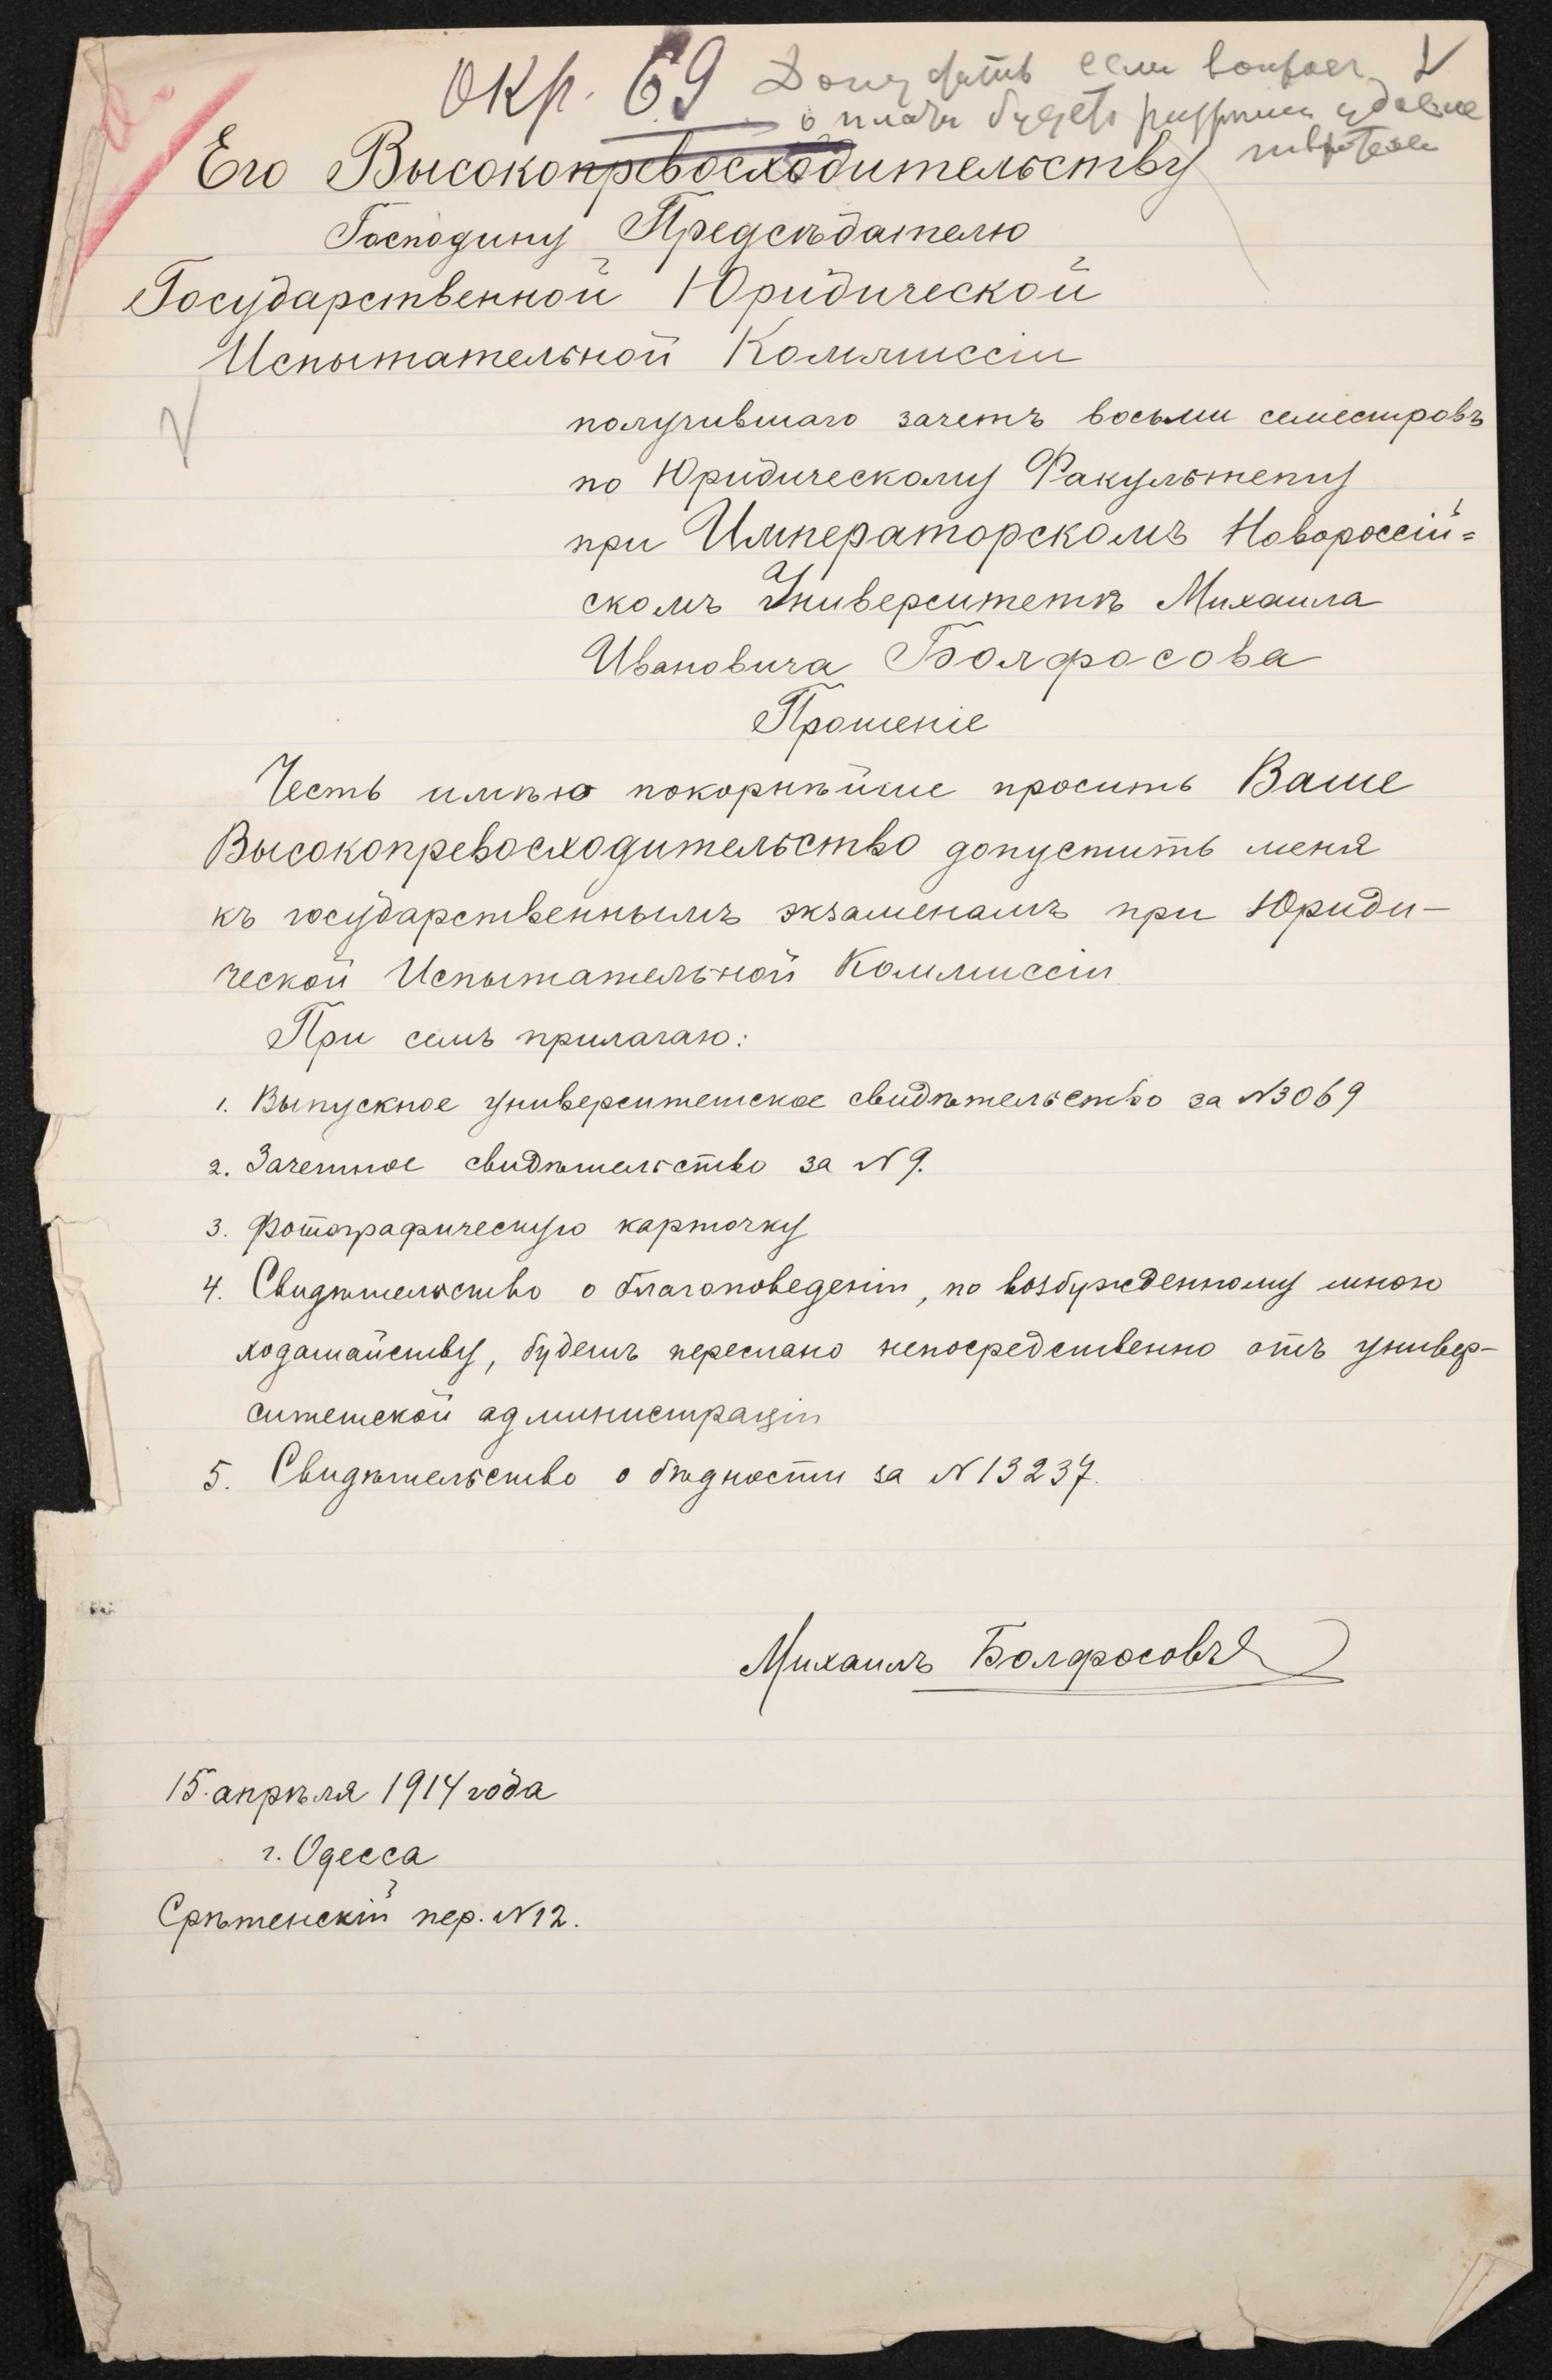 окр. 69
Допустить если вопрос
о плате будет разрешен удовле
творительн
Его Высокопревосходительству
Господину Предсѣдателю
Государственной Юридической
Испытательной Коммиссіи
получившаго зачетъ восьми семестровъ
по Юридическому Факультету
при Императорскомъ Новороссій=
скомъ Университетѣ Михаила
Ивановича Болфосова
Прошеніе
Честь имѣю покорнѣйше просить Ваше
Высокопревосходительство допустить меня
къ государственнымъ экзаменамъ при Юриди-
ческой Испытательной Коммиссіи
При семъ прилагаю:
1. Выпускное университетское свидѣтельство за №3069
2. Зачетное свидѣтельство за №9.
3. Фотографическую карточку
4. Свидѣтельство о благоповеденіи, по возбужденному мною
ходатайству, будетъ переслано непосредственно отъ универ-
ситетской администраціи
5. Свидѣтельство о бѣдности за №13237.
Михаилъ Болфосовъ
15 апрѣля 1914 года
г. Одесса
Срѣтенскій пер. №12.